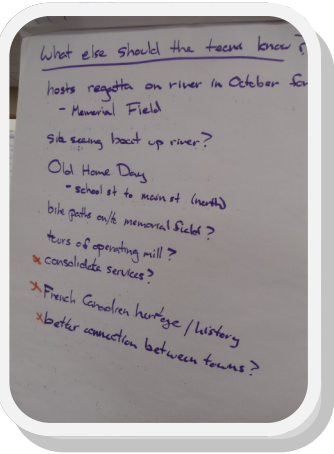 What else should the team know?
hosts regatta on river in October for
- Memorial Field
site seeing boat up river?
Old Home Day
- school st to main st (north)
bike paths on/to memorial field?
tours of operating mill?
x consolidate services?
x French Canadien heritage / history
x better connection between towns?